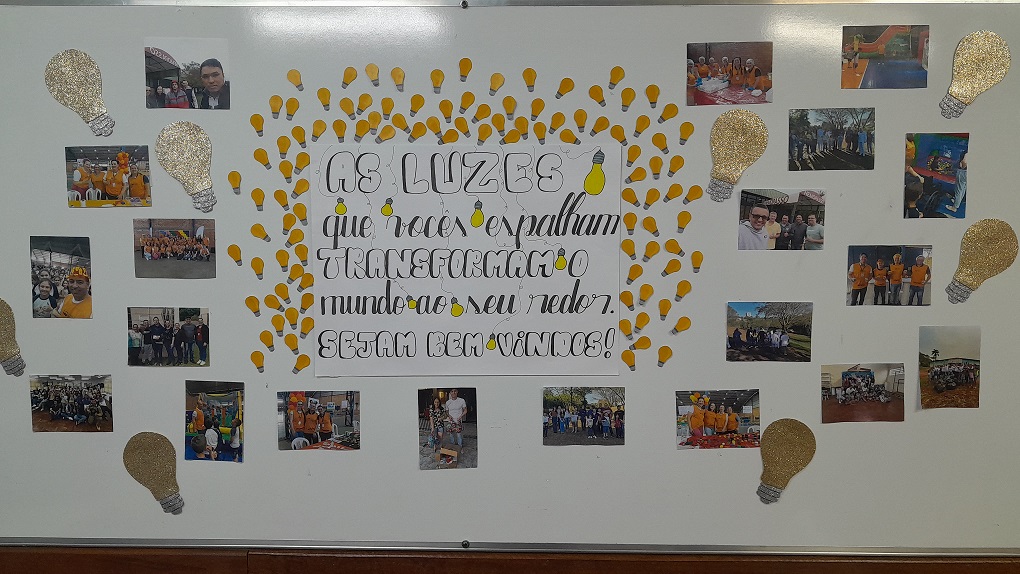 AS LUZES
que vocês espalham
TRANSFORMAM O
mundo ao seu redor.
SEJAM BEM VINDOS!